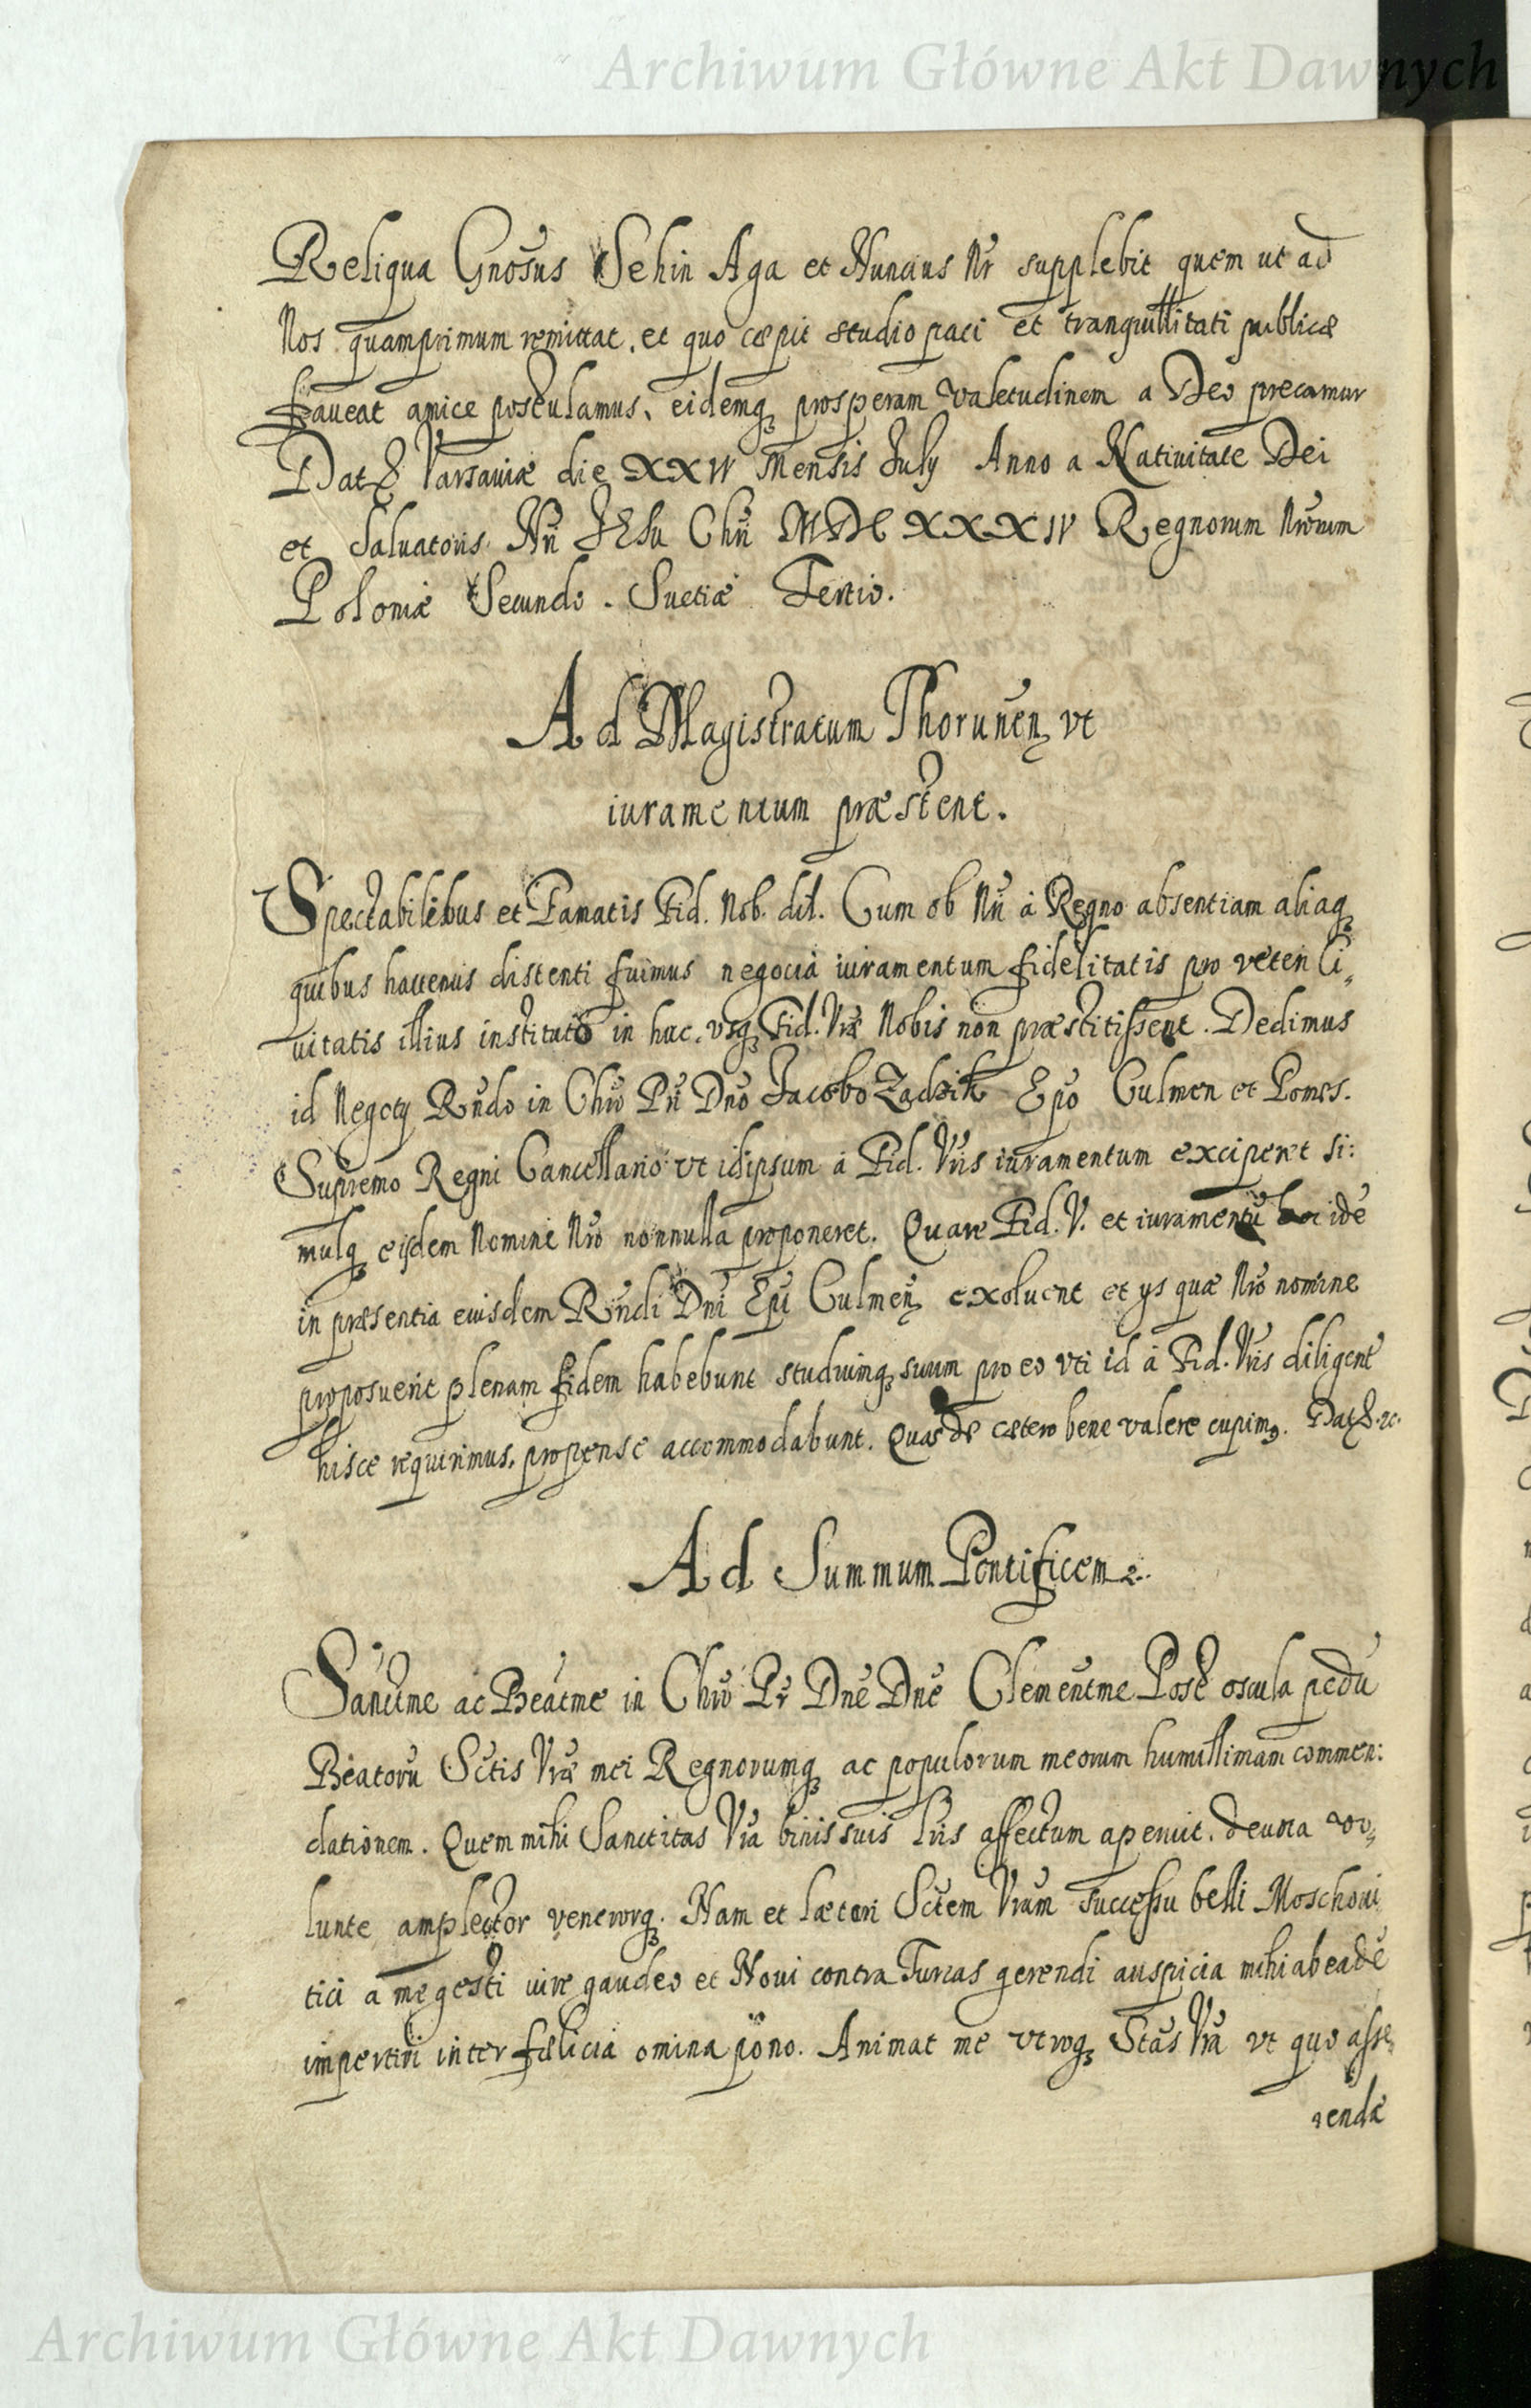 Archiwum Główne Akt Dawnych
Reliqua Gnosus Sehin Aga et Nuncius Nr supplebit quem ut ad
Nos quamprimum remittat, et quo cœpit studio paci et tranquillitati publicæ
faveat amice postulamus, eidemq prosperam valetudinem a Deo precamur
Dat Varsaviæ die XXIV mensis July Anno a Nativitate Dei
et Salvatoris Nri JESu Chri MDCXXXIV Regnorum Nrorum
Poloniæ Secundo. Suetiæ Tertio.
Ad Magistratum Thorunen, vt
iuramentum præstent.
Spectabilibus et Famatis Fid. Nob. dil. Cum ob Nri à Regno absentiam aliaq
quibus hactenus distenti fuimus negocia iuramentum fidelitatis pro veteri Ci,,
uitatis illius instituto in huc, vsq Fid. Vræ Nobis non præstitissent. Dedimus
id Negoty Rndo in Chro Pri Dno Jacobo Zadzik Epo Culmen et Pomes.
Supremo Regni Cancellario vt idipsum à Fid. Vris iuramentum exciperet si:
mulq eisdem Nomine Nro nonnulla proponeret. Quare Fid. V. et iuramentu hoc ide
in præsentia eiusdem Rndi Dni Epi Culmen, exoluent et ys quæ Nro nomine
proposuerit plenam fidem habebunt studiumq suum pro eo vti id à Fid. Vris diligent
hisce requirimus, propense accommodabunt. Quas de cætero bene valere cupim9. Dat
Ad Summum Pontificem
Sanctme ac Beatme in Chro Pr Dne Dne Clementme Post oscula pedu
Beatoru Sctis Vræ mei Regnorumq ac populorum meorum humillimam commen:
dationem. Quem mihi Sanctitas Vra binis suis Lris affectum aperuit, deuota vo,,
lunte amplector venerorq. Nam et lætari Sctem Vram successu belli Moschoui,
tici a me gesti iure gaudeo et Noui contra Turcas gerendi auspicia mihi ab eade
impertiri inter fælicia omina pono. Animat me vtroq Stas Vra vt quo asse,
rendæ
Archiwum Główne Akt Dawnych